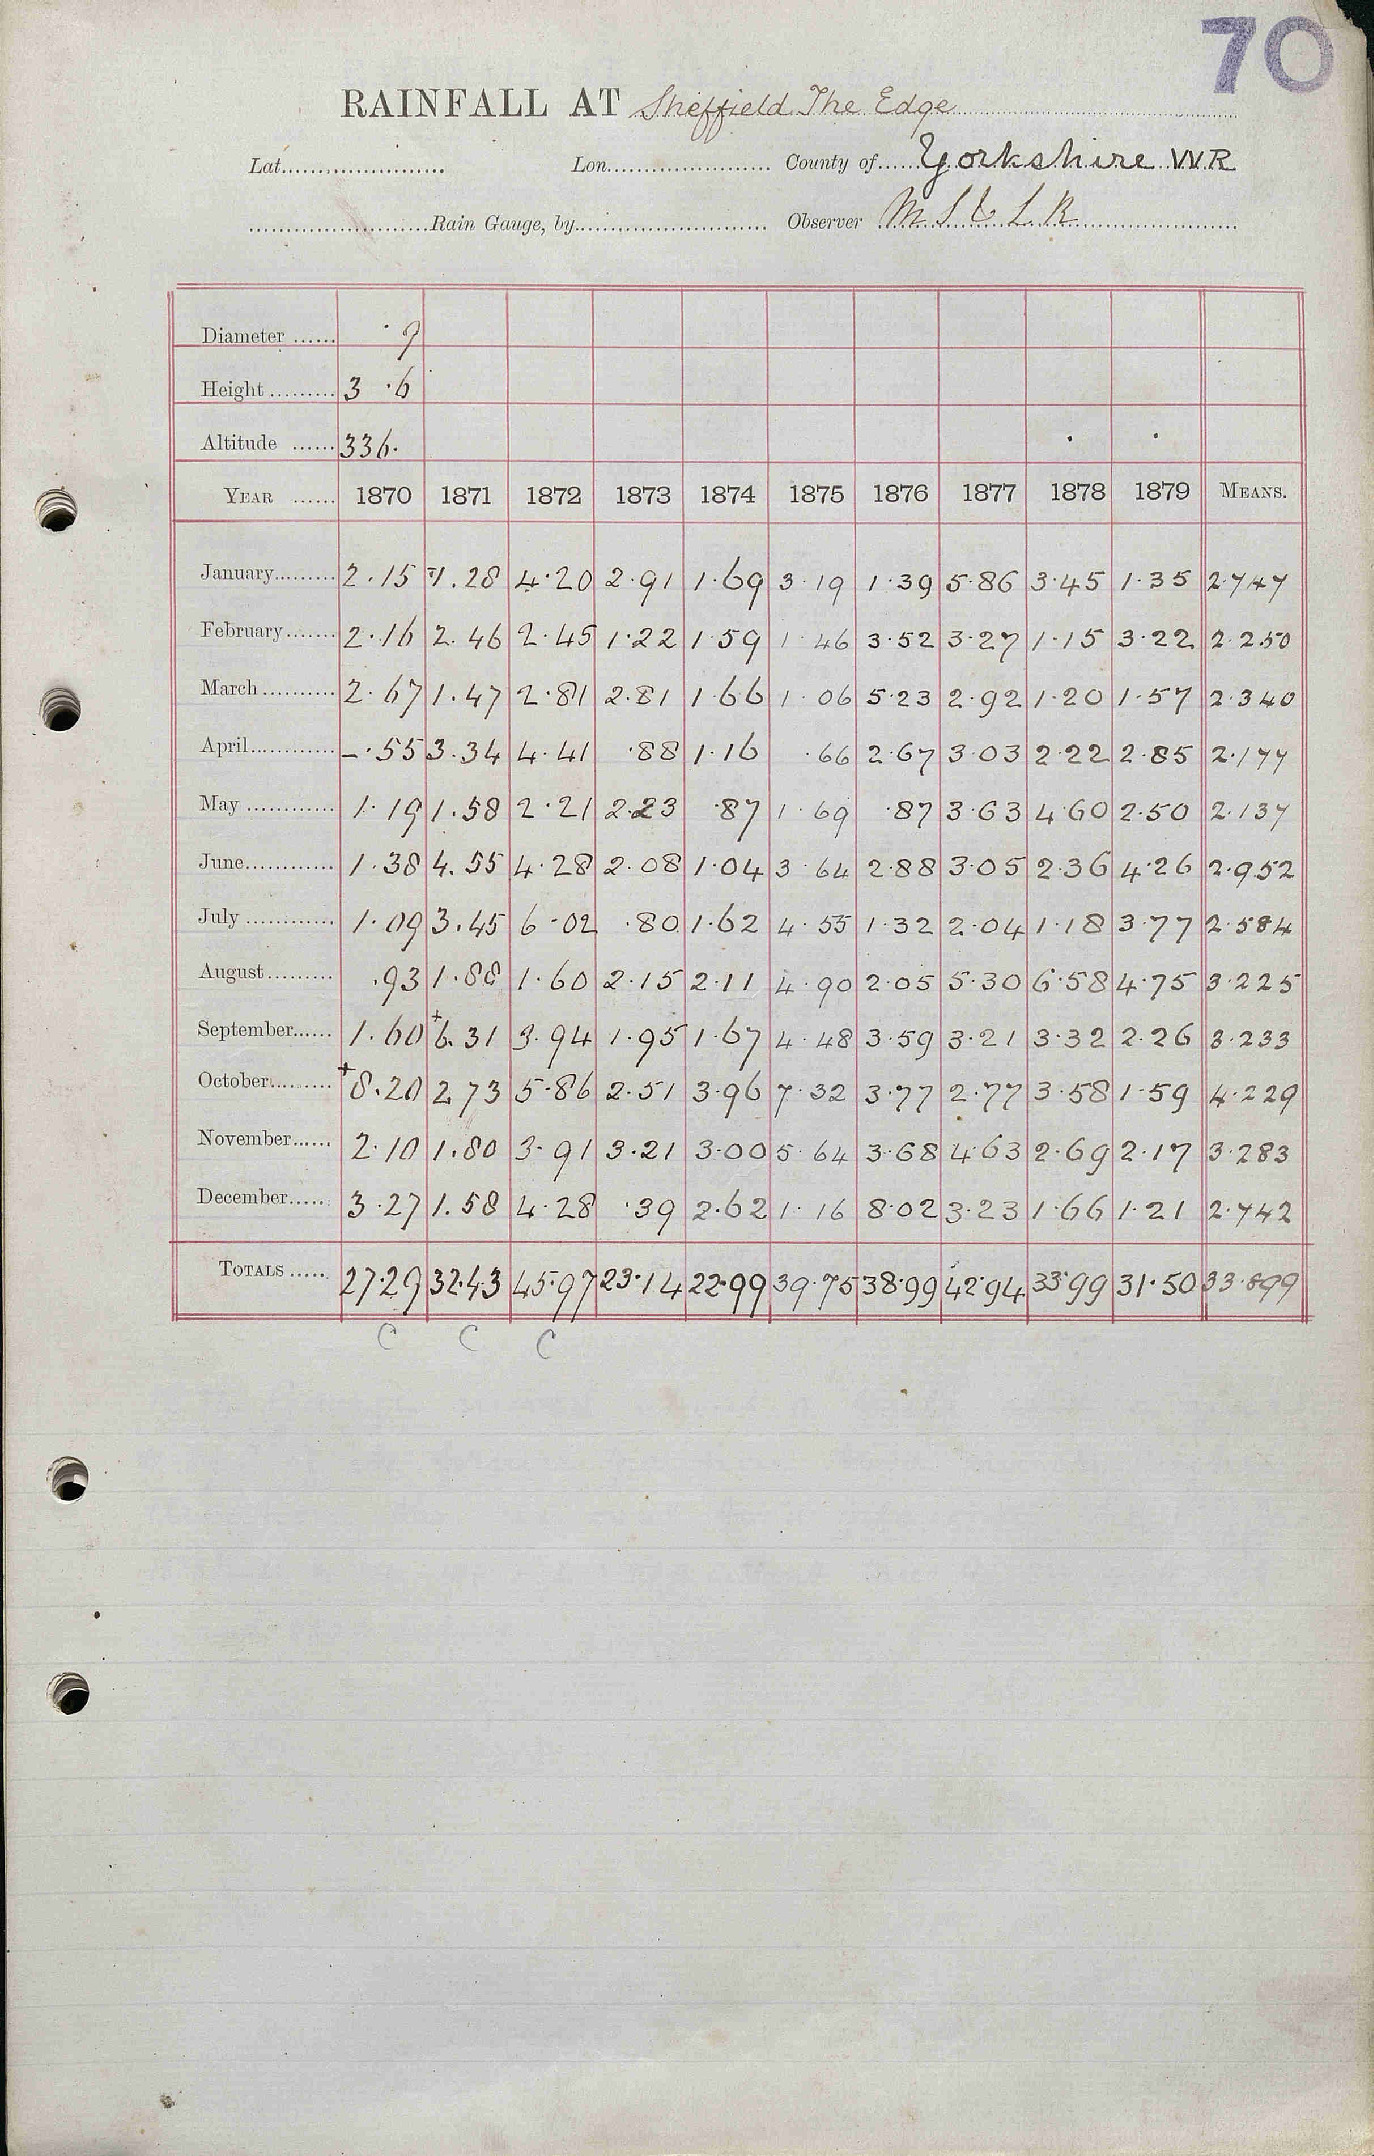 70
RAINFALL AT Sheffield The Edge
Lat. Lon. County of Yorkshire WR
Rain Gauge, by Observer M S & L R
Diameter ...... 9
Height ......... 3 .6
Altitude ...... 336.
YEAR ...... 1870 1871 1872 1873 1874 1875 1876 1877 1878 1879 MEANS.
January......... 2.15 1.28 4.20 2.91 1.69 3.19 1.39 5.86 3.45 1.35 2.747
February....... 2.16 2.46 2.45 1.22 1.59 1.46 3.52 3.27 1.15 3.22 2.250
March .......... 2.67 1.47 2.81 2.81 1.66 1.06 5.23 2.92 1.20 1.57 2.340
April............ –.55 3.34 4.41 .88 1.16 .66 2.67 3.03 2.22 2.85 2.177
May ............ 1.19 1.58 2.21 2.23 .87 1.69 .87 3.63 4.60 2.50 2.137
June............ 1.38 4.55 4.28 2.08 1.04 3.64 2.88 3.05 2.36 4.26 2.952
July ............ 1.09 3.45 6.02 .80 1.62 4.55 1.32 2.04 1.18 3.77 2.584
August......... .93 1.88 1.60 2.15 2.11 4.90 2.05 5.30 6.58 4.75 3.225
September...... 1.60 +6.31 3.94 1.95 1.67 4.48 3.59 3.21 3.32 2.26 3.233
October......... +8.20 2.73 5.86 2.51 3.96 7.32 3.77 2.77 3.58 1.59 4.229
November...... 2.10 1.80 3.91 3.21 3.00 5.64 3.68 4.63 2.69 2.17 3.283
December..... 3.27 1.58 4.28 .39 2.62 1.16 8.02 3.23 1.66 1.21 2.742
TOTALS ..... 27.29 32.43 45.97 23.14 22.99 39.75 38.99 42.94 33.99 31.50 33.899
C C C